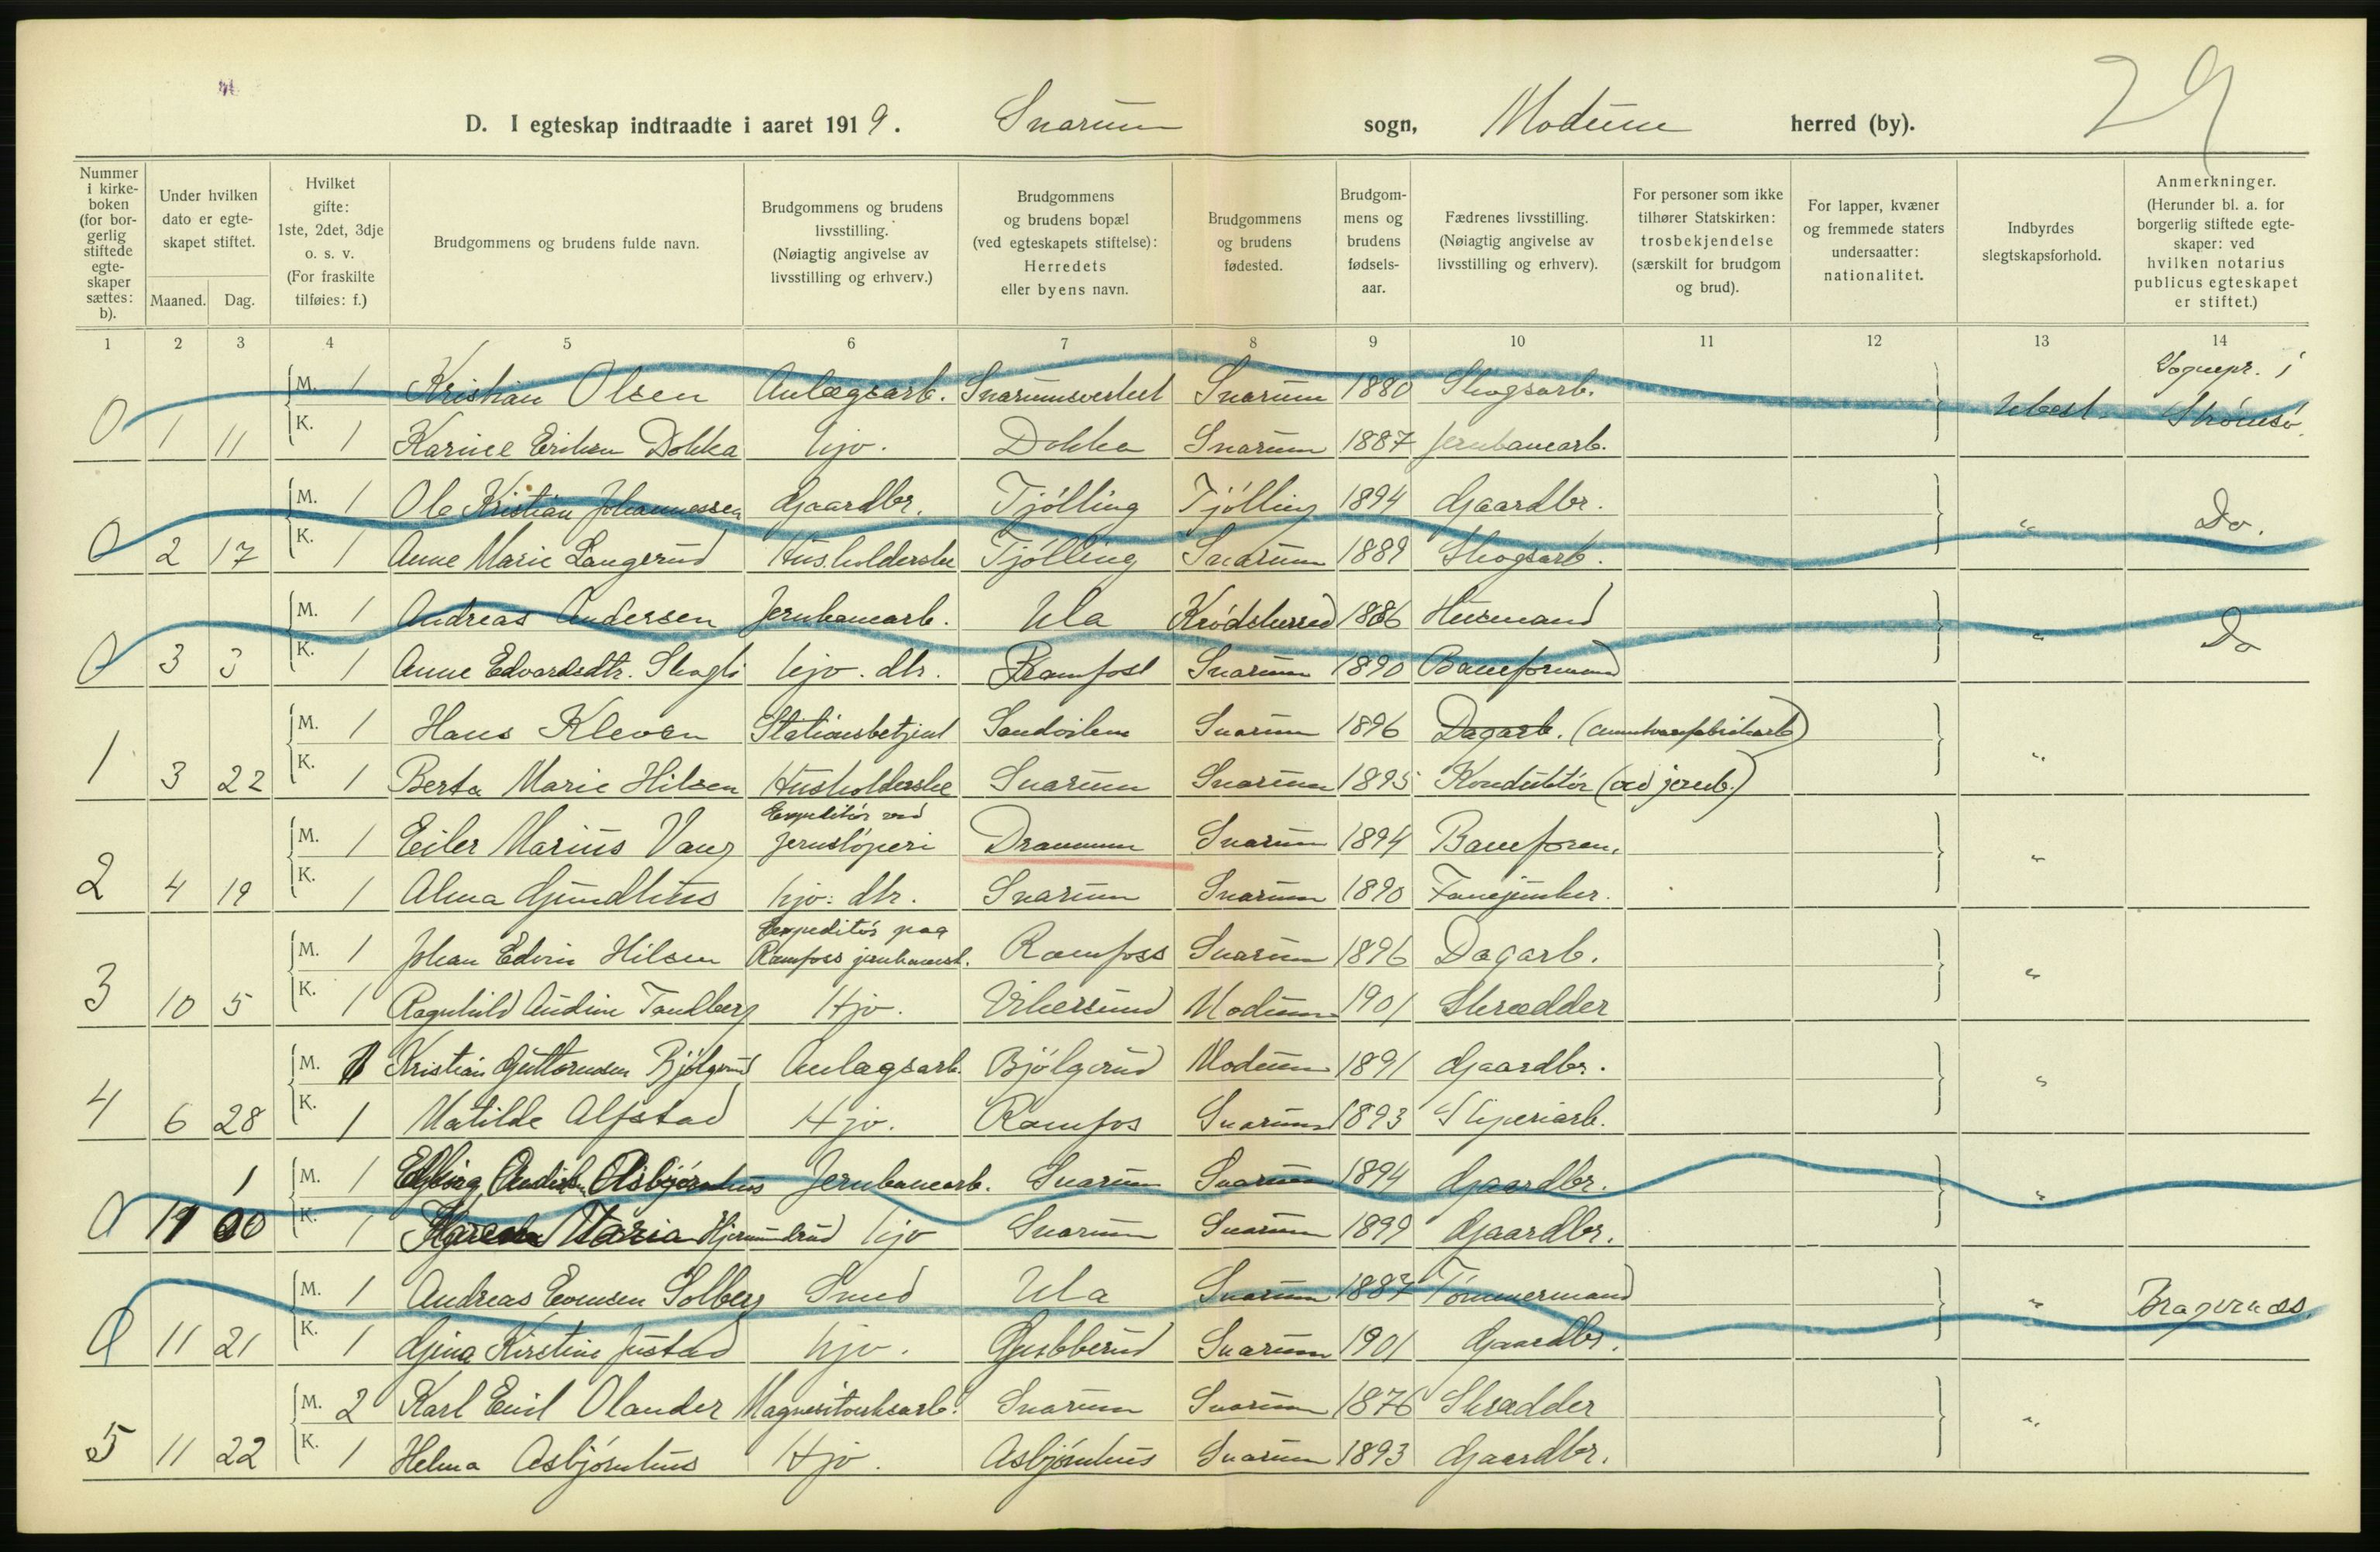 29
D. I egteskap indtraadte i aaret 1919. Snarum sogn, Modum herred (by).
Nummer i kirke-boken (for bor-gerlig stiftede egte-skaper sættes: b).
Under hvilken dato er egte-skapet stiftet.
Maaned. Dag.
Hvilket gifte: 1ste, 2det, 3dje o. s. v. (For fraskilte tilføies: f.)
Brudgommens og brudens fulde navn.
Brudgommens og brudens livsstilling. (Nøiagtig angivelse av livsstilling og erhverv.)
Brudgommens og brudens bopæl (ved egteskapets stiftelse): Herredets eller byens navn.
Brudgommens og brudens fødested.
Brudgom-mens og brudens fødsels-aar.
Fædrenes livsstilling. (Nøiagtig angivelse av livsstilling og erhverv).
For personer som ikke tilhører Statskirken: trosbekjendelse (særskilt for brudgom og brud).
For lapper, kvæner og fremmede staters undersaatter: nationalitet.
Indbyrdes slegtskapsforhold.
Anmerkninger. (Herunder bl. a. for borgerlig stiftede egte-skaper: ved hvilken notarius publicus egteskapet er stiftet.)
1 2 3 4 5 6 7 8 9 10 11 12 13 14
M. 1 Kristian Olsen Anlægsarb. Snarumsverket Snarum 1880 Skogsarb. Ubesl. Sognepr. i Strømsø.
0 1 11 K. 1 Karine Eriksen Dokka hjv. Dokka Snarum 1887 Jernbanearb.
M. 1 Ole Kristian Johannessen Gaardbr. Tjølling Tjølling 1894 Gaardbr. " Do.
0 2 17 K. 1 Anne Marie Langerud Husholderske Tjølling Snarum 1889 Skogsarb.
M. 1 Andreas Andersen Jernbanearb. Ula Krødsherred 1886 Husmand " Do
0 3 3 K. 1 Anne Edvardsdtr. Skogli hjv. dtr. Ramfost Snarum 1890 Baneformand
M. 1 Hans Kleven Stationsbetjent Sandviken Snarum 1896 Dagarb. "
1 3 22 K. 1 Berta Marie Hilsen Husholderske Snarum Snarum 1895 Konduktør (ved jernb.)
M. 1 Eiler Marius Vang Expeditør ved Drammen Snarum 1894 Baneform. "
2 4 19 K. 1 Alma Gundhus hjv. dtr. Snarum Snarum 1890 Fanejunker.
M. 1 Johan Edvin Hilsen Expeditør paa Ramfoss jernbanest. Ramfoss Snarum 1896 Dagarb. "
3 10 5 K. 1 Ragnhild Audine Tandberg Hjv. Vikersund Modum 1901 Skrædder
M. 1 Kristian Guttormsen Bjølgerud Anlægsarb. Bjølgerud Modum 1891 Gaardbr. "
4 6 28 K. 1 Matilde Alfstad Hjv. Ramfos Snarum 1893 Sliperiarb.
M. 1 Asbjørnhus Jernbanearb. Snarum Snarum 1894 Gaardbr. "
0 K. 1 Maria Hjermundrud hjv Snarum Snarum 1899 Gaardbr.
M. 1 Andreas Evensen Solberg Smed Ula Snarum 1887 Tømmermand " Bragernæs.
0 11 21 K. 1 Gjina Kirstine Justad hjv. Gubberud Snarum 1901 Gaardbr.
M. 2 Karl Emil Olander Magnesitverksarb. Snarum Snarum 1876 Skrædder "
5 11 22 K. 1 Helma Asbjørnhus Hjv. Asbjørnhus Snarum 1893 Gaardbr.